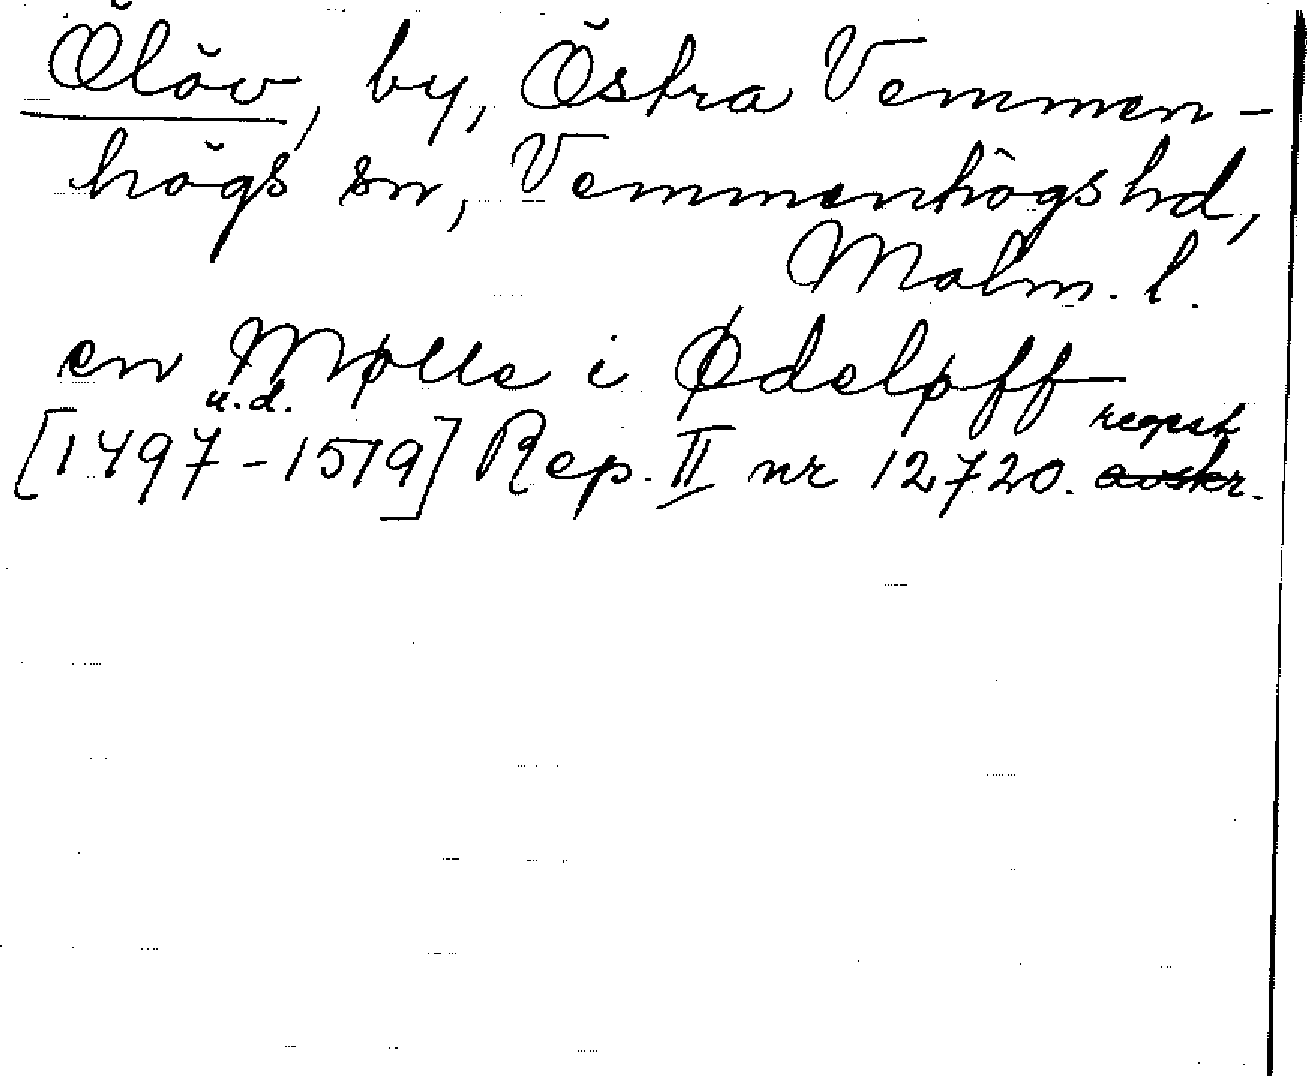 Ölöv, by, Östra Vemmen-
högs sn, Vemmenhögs hd,
Malm. l.
en Mølle i Ødeløff
u.d.
[1497-1519] Rep. II nr 12720. avskr.